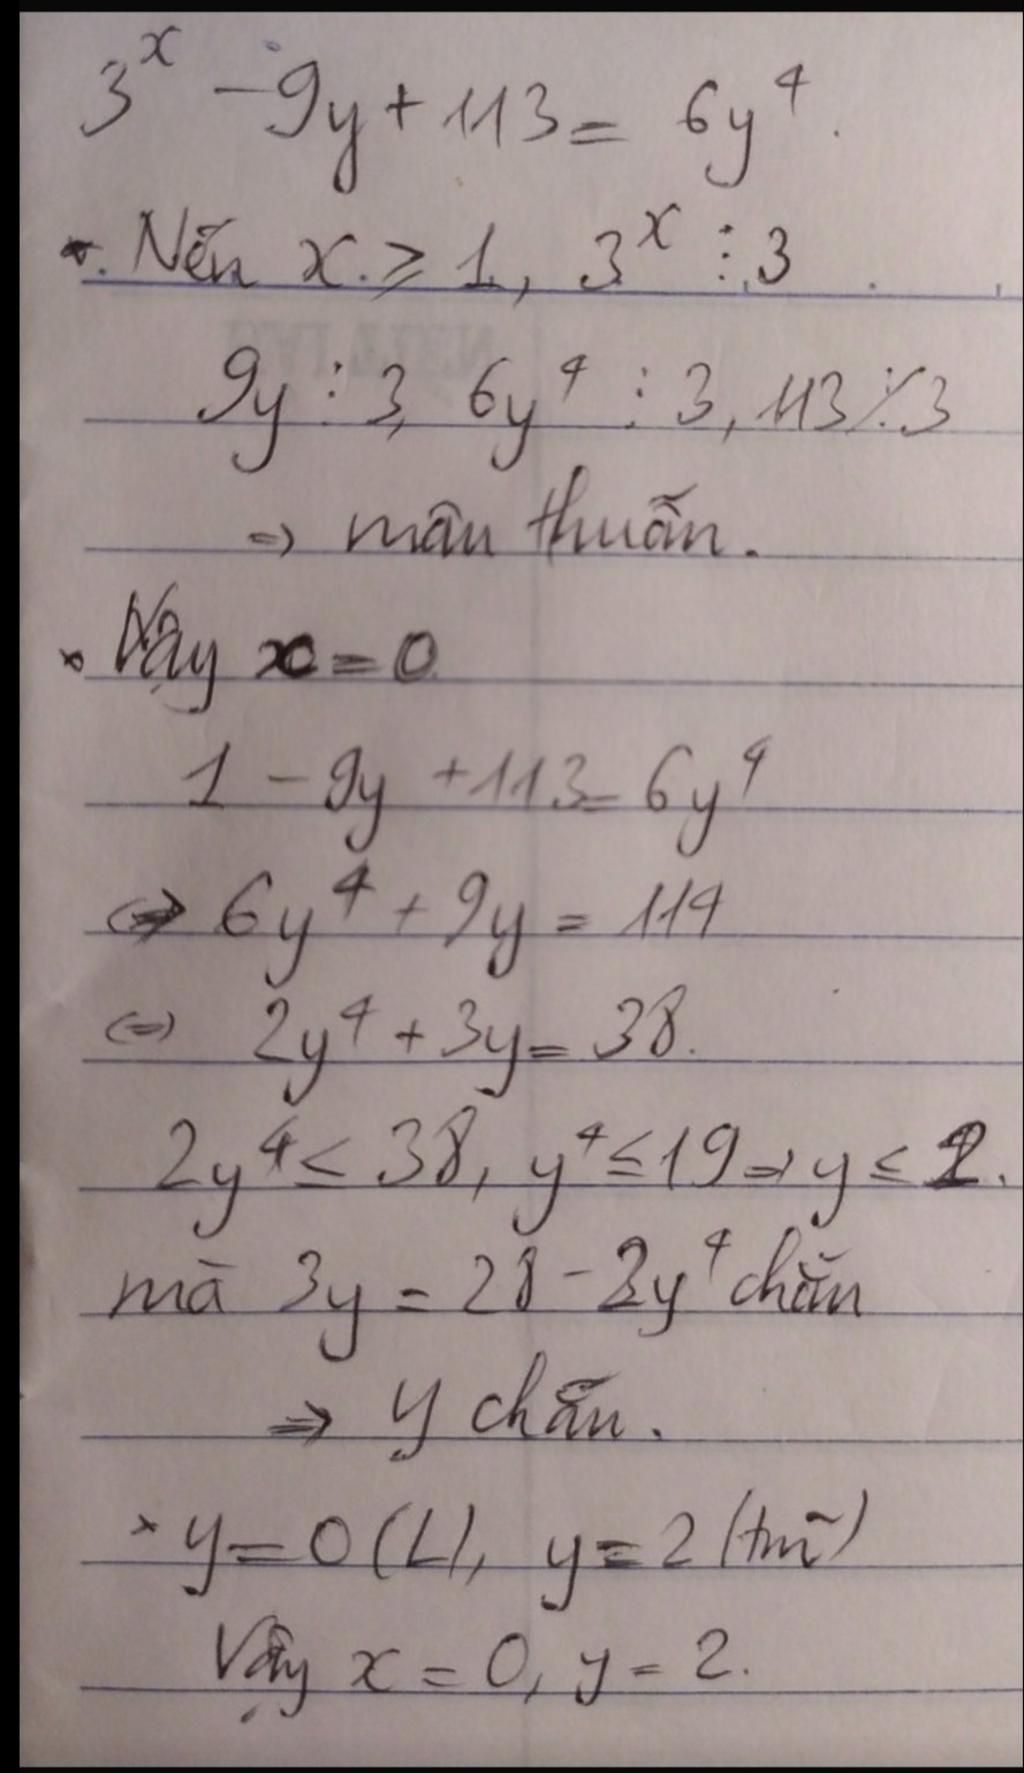 3^x - 9y + 113 = 6y^4.
• Nếu x ≥ 1, 3^x ⋮ 3
9y ⋮ 3, 6y^4 ⋮ 3, 113 ⋮̸ 3
⇒ mâu thuẫn.
• Vậy x = 0
1 - 9y + 113 = 6y^4
⇔ 6y^4 + 9y = 114
⇔ 2y^4 + 3y = 38.
2y^4 ≤ 38, y^4 ≤ 19 ⇒ y ≤ 2.
mà 3y = 28 - 2y^4 chẵn
⇒ y chẵn.
× y = 0 (L), y = 2 (tm)
Vậy x = 0, y = 2.